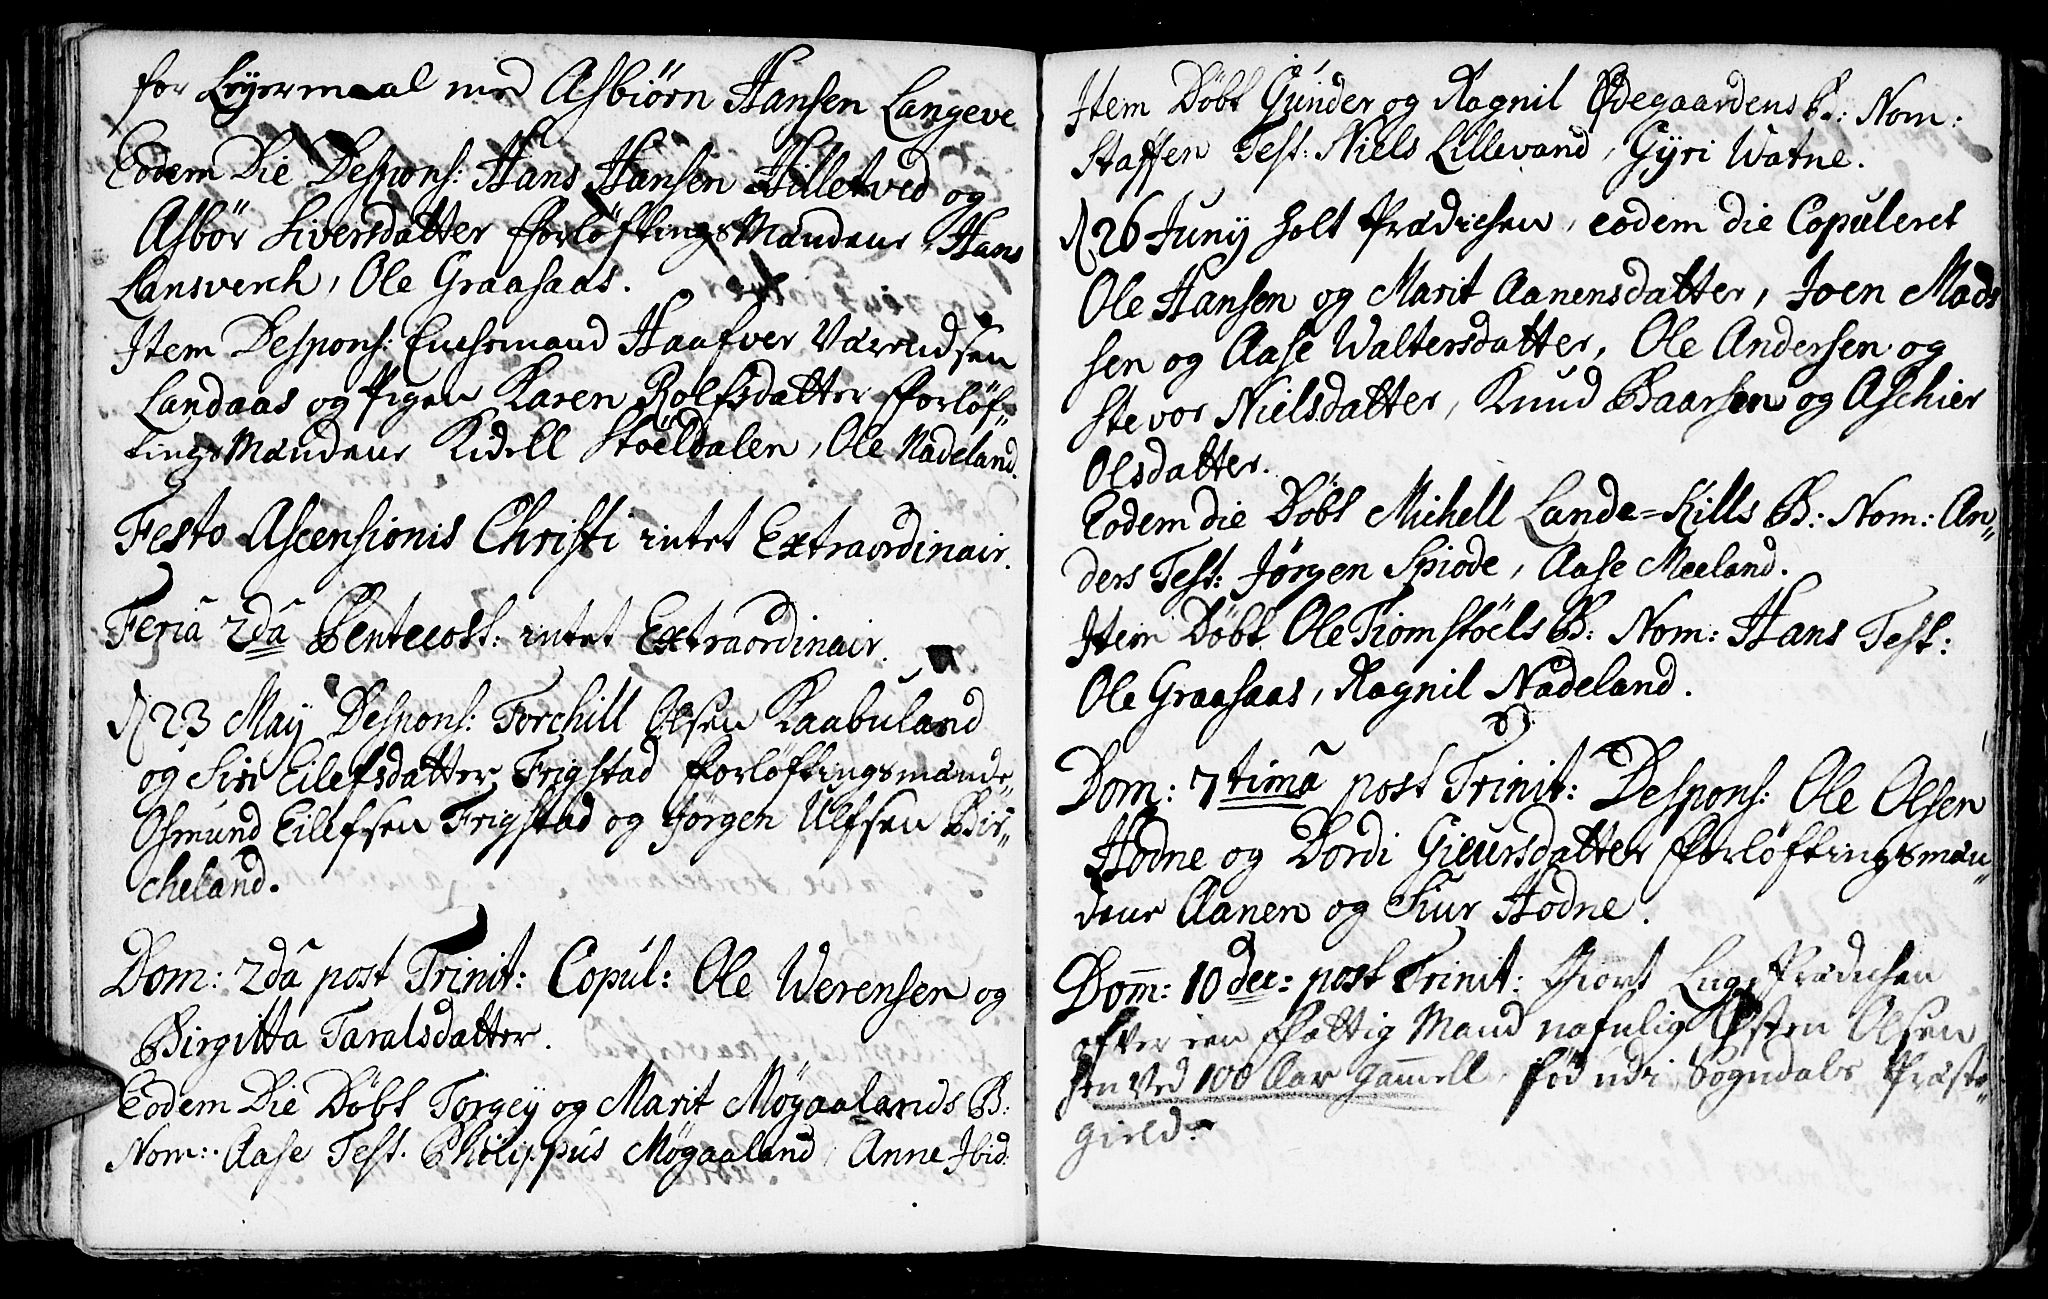 for Leyermaal med Asbiörn Hansen Langeve
Eodem Die Despons: Hans Hansen Hilletved og
Asbör Siversdatter Forløftings Mændene Hans
Lansverch, Ole Graasaas.
Item Despons: Enchemand Haafver Værelsen
Landaas og Pigen Karen Rolfsdatter Forløf„
tings Mændene Kidell Stöeldalen, Ole Nadeland.
Festo Ascensionis Christi intet Extraordinair.
Feriâ 2dâ Pentecost: intet Extraordinair.
d 23 May Despons: Torchill Olsen Kaabuland
og Siri Eilefsdatter Frigstad forløftingsmænde„
Osmund Eilefsen Frigstad og Jørgen Ulfsen Bir„
cheland.
Dom: 2dâ post Trinit: Copul: Ole Werensen og
Birgitta Taralsdatter.
Eodem Die Döbt Torgey og Marit Møgaalands B:
Nom: Aase Test. Philippus Møgaaland, Anne Ibid:
Item Döbt Gunder og Ragnil Ødegaardens B: Nom:
Staffen Test: Niels Lillevand, Gyri Watne.
d 26 Junij holt Prædichen, eodem die Copuleret
Ole Hansen og Marit Aanensdatter, Joen Mads
sen og Aase Waltersdatter, Ole Andersen og
Stevor Nielsdatter, Knud Baarsen og Aschier
Olsdatter.
Eodem die Döbt Michell Lande=Kills B: Nom: An„
ders Test: Jørgen Spiode, Aase Meeland.
Item Döbt Ole Tiomstöels B: Nom: Hans Test:
Ole Graasaas, Ragnil Nadeland.
Dom: 7timâ post Trinit: Despons: Ole Olsen
Hodne og Dordi Gieursdatter Forløftingsmæn„
dene Aanen og Siur Hodne.
Dom: 10 dec: post Trinit: Giort Liig Prædichen
efter een Fattig Mand nafnlig Østen Olsen
hen ved 100 Aar gammell, fød udi Sogndals Præste„
gield.